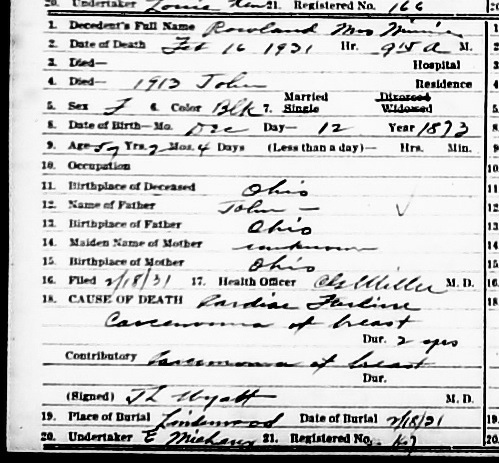 20. Undertaker Louis 21. Registered No. 166
1. Decedent's Full Name Rowland Mrs Minnie
2. Date of Death Feb 16 1931 Hr. 915 A M.
3. Died— Hospital
4. Died— 1913 John Residence
5. Sex F 6. Color Blk 7. Married Single Divorced Widowed
8. Date of Birth—Mo. Dec Day— 12 Year 1873
9. Age 57 Yrs. 2 Mos. 4 Days (Less than a day)— Hrs. Min.
10. Occupation
11. Birthplace of Deceased Ohio
12. Name of Father John —
13. Birthplace of Father Ohio
14. Maiden Name of Mother unknown
15. Birthplace of Mother Ohio
16. Filed 2/18/31 17. Health Officer Miller M. D.
18. CAUSE OF DEATH Cardiac Failure
Carcenoma of breast
Dur. 2 yrs
Contributory Carcenoma of breast
Dur.
(Signed) Wyatt M. D.
19. Place of Burial Lindenwood Date of Burial 2/18/31
20. Undertaker E 21. Registered No. K7